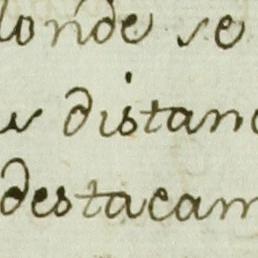 donde se
distanc
destacam